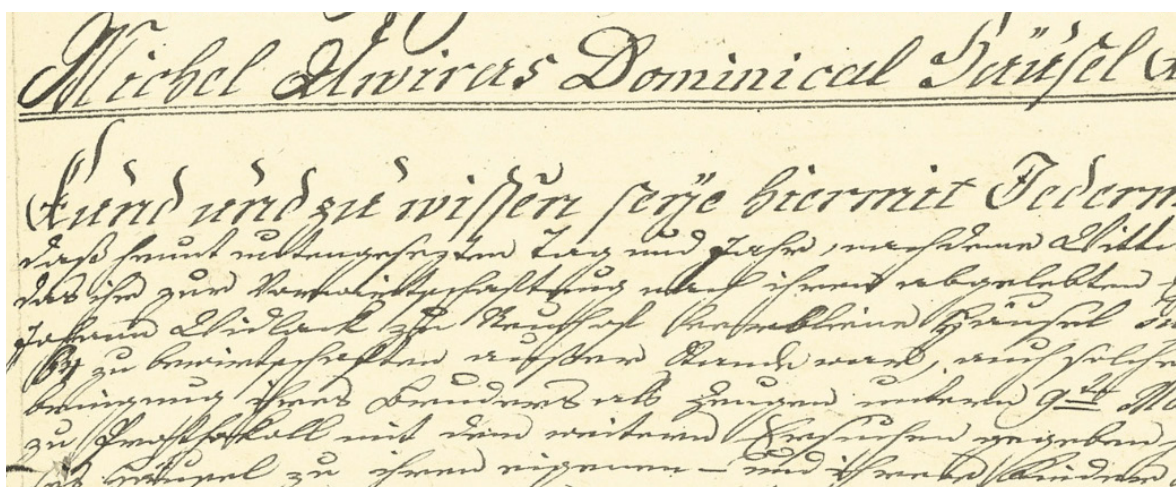 Michel Awiras Dominical Häüsel
Kund und zu wissen seÿe hiermit Jederm
daß heunt untengesezten Tag und Jahr, nachdeme Witt
das ihr zur Verwirtschaftung nach ihren abgelebten
Johann Widlack zu Neuhof verbliene Häusel
64 zu bewirtschaften ausser Stande war, auch solche
bringung ihres Bruders als Zeugen unterm 9ten M
zu Prothokoll mit dem weitern Ersuchen gegeben
Häusel zu ihren eigenen – und ihrer Kinder